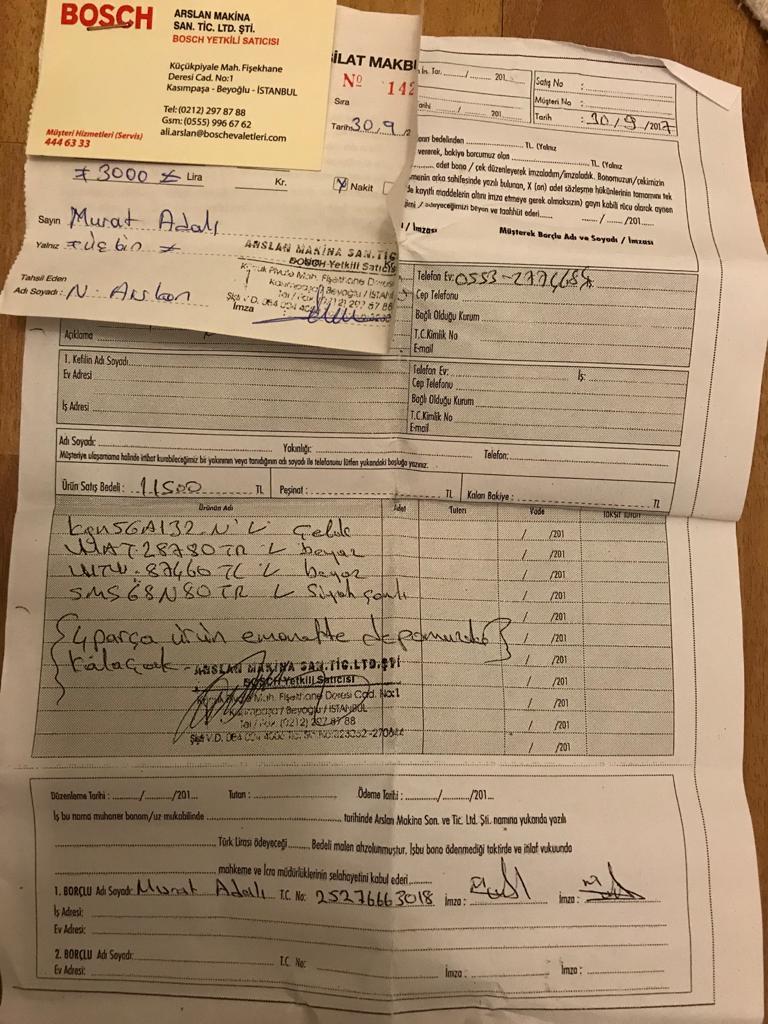 BOSCH
ARSLAN MAKİNA
SAN. TİC. LTD. ŞTİ.
BOSCH YETKİLİ SATICISI
Küçükpiyale Mah. Fişekhane
Deresi Cad. No:1
Kasımpaşa - Beyoğlu - İSTANBUL
Tel: (0212) 297 87 88
Gsm: (0555) 996 67 62
ali.arslan@boschevaletleri.com
Müşteri Hizmetleri (Servis)
444 6 333
İLAT MAKBU
Nº 142
Sıra
Tarih: 30.9
3000 Lira Kr. Nakit
Sayın Murat Adalı
Yalnız üç bin
Tahsil Eden
Adı Soyadı: N. Arslan
İmza
ARSLAN MAKİNA SAN.TİC
BOSCH Yetkili Satıcıs
Tar. ....../....../ 201..
arihi ....../....../ 201
Satış No :
Müşteri No :
Tarih : 30 / 9 / 2017
bedelinden .......... TL. (Yalnız
vererek, bakiye borcumuz olan .......... TL. (Yalnız
adet bono / çek düzenleyerek imzaladım/imzaladık. Bonomuzun/çekimizin
menin arka sahifesinde yazılı bulunan, X (on) adet sözleşme hükümlerinin tamamını tek
de kayıtlı maddelerin altını imza etmeye gerek olmaksızın) gayrı kabili rücu olarak aynen
/ ödeyeceğimizi beyan ve taahhüt ederi..........
...... / ...... /201...
/ İmzası Müşterek Borçlu Adı ve Soyadı / İmzası
Telefon Ev:
Cep Telefonu
Bağlı Olduğu Kurum
T.C.Kimlik No
E-mail
Açıklama
1. Kefilin Adı Soyadı
Ev Adresi
İş Adresi
Telefon Ev: İş:
Cep Telefonu
Bağlı Olduğu Kurum
T.C.Kimlik No
E-mail
Adı Soyadı: Yakınlığı: Telefon:
Müşteriye ulaşamama halinde irtibat kurabileceğimiz bir yakınının veya tanıdığının adı soyadı ile telefonunu lütfen yukarıdaki boşluğa yazınız.
Ürün Satış Bedeli : 11500 TL Peşinat : TL Kalan Bakiye : TL
Ürünün Adı Adet Tutarı Vade Taksit Tutarı
Çelik / /201
WAT28780TR beyaz / /201
beyaz / /201
SMS68N80TR Siyah camlı / /201
/ /201
4 parça ürün emanette depomuzda / /201
kalacak / /201
ARSLAN MAKİNA SAN.TİC.LTD.ŞTİ
BOSCH Yetkili Satıcısı
Mah. Fişekhane Deresi Cad. No:1
Kasımpaşa / Beyoğlu / İSTANBUL
Tel / Fax: (0212) 297 87 88
/ /201
/ /201
/ /201
/ /201
Düzenleme Tarihi : ....../....../201... Tutarı : Ödeme Tarihi : ....../....../201...
İş bu nama muharrer bonom/uz mukabilinde .......... tarihinde Arslan Makina San. ve Tic. Ltd. Şti. namına yukarıda yazılı
.......... Türk Lirası ödeyeceği .......... Bedeli malen ahzolunmuştur. İşbu bono ödenmediği taktirde ve itilaf vukuunda
.......... mahkeme ve İcra müdürlüklerinin selahiyetini kabul ederi..........
1. BORÇLU Adı Soyadı: Murat Adalı T.C. No: 25276663018 İmza : İmza :
İş Adresi:
Ev Adresi:
2. BORÇLU Adı Soyadı: T.C. No: İmza : İmza :
Ev Adresi: